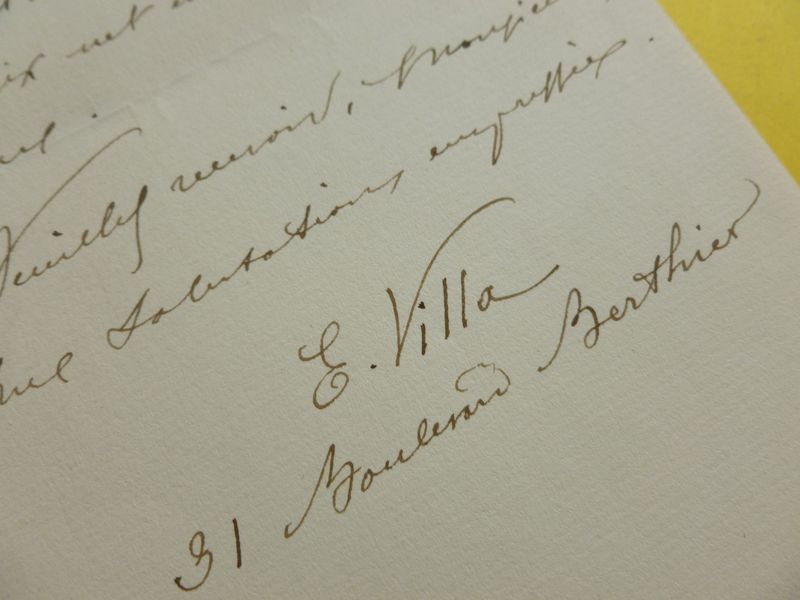 net
Veuillez recevoir, Monsieur
salutations empressées.
E. Villa
31 Boulevard Berthier